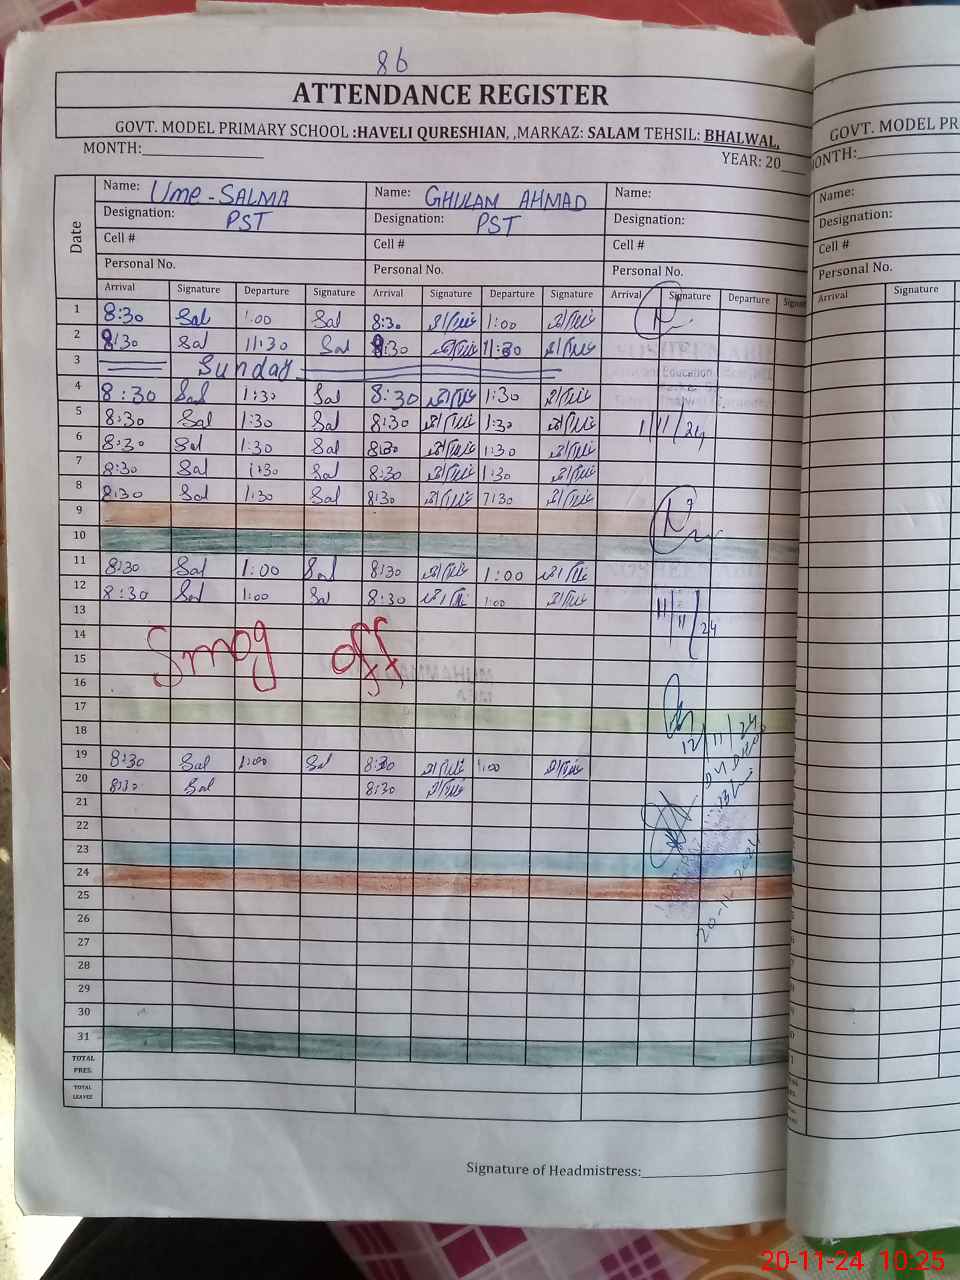 86
ATTENDANCE REGISTER
GOVT. MODEL PRIMARY SCHOOL :HAVELI QURESHIAN, ,MARKAZ: SALAM TEHSIL: BHALWAL,
MONTH:____________ YEAR: 20__
Name: Ume-SALMA Name: GHULAM AHMAD Name:
Designation: PST Designation: PST Designation:
Cell # Cell # Cell #
Personal No. Personal No. Personal No.
Date
Arrival Signature Departure Signature Arrival Signature Departure Signature Arrival Signature Departure
1 8:30 Sal 1:00 Sal 8:30 1:00
2 8:30 Sal 11:30 Sal 8:30 11:30
3 Sunday
4 8:30 Sal 1:30 Sal 8:30 1:30
5 8:30 Sal 1:30 Sal 8:30 1:30 1/11/24
6 8:30 Sal 1:30 Sal 8:30 1:30
7 8:30 Sal 1:30 Sal 8:30 1:30
8 8:30 Sal 1:30 Sal 8:30 1:30
9
10
11 8:30 Sal 1:00 Sal 8:30 1:00
12 8:30 Sal 1:00 Sal 8:30 1:00
13 11/11/24
14 Smog off
15
16
17
18 12/11/24
19 8:30 Sal 1:00 Sal 8:30 1:00
20 8:30 Sal 8:30
21
22
23
24
25
26 20-11-2024
27
28
29
30
31
TOTAL PRES.
TOTAL LEAVES
Signature of Headmistress:____________
GOVT. MODEL PR
MONTH:
Name:
Designation:
Cell #
Personal No.
Arrival Signature
20-11-24 10:25